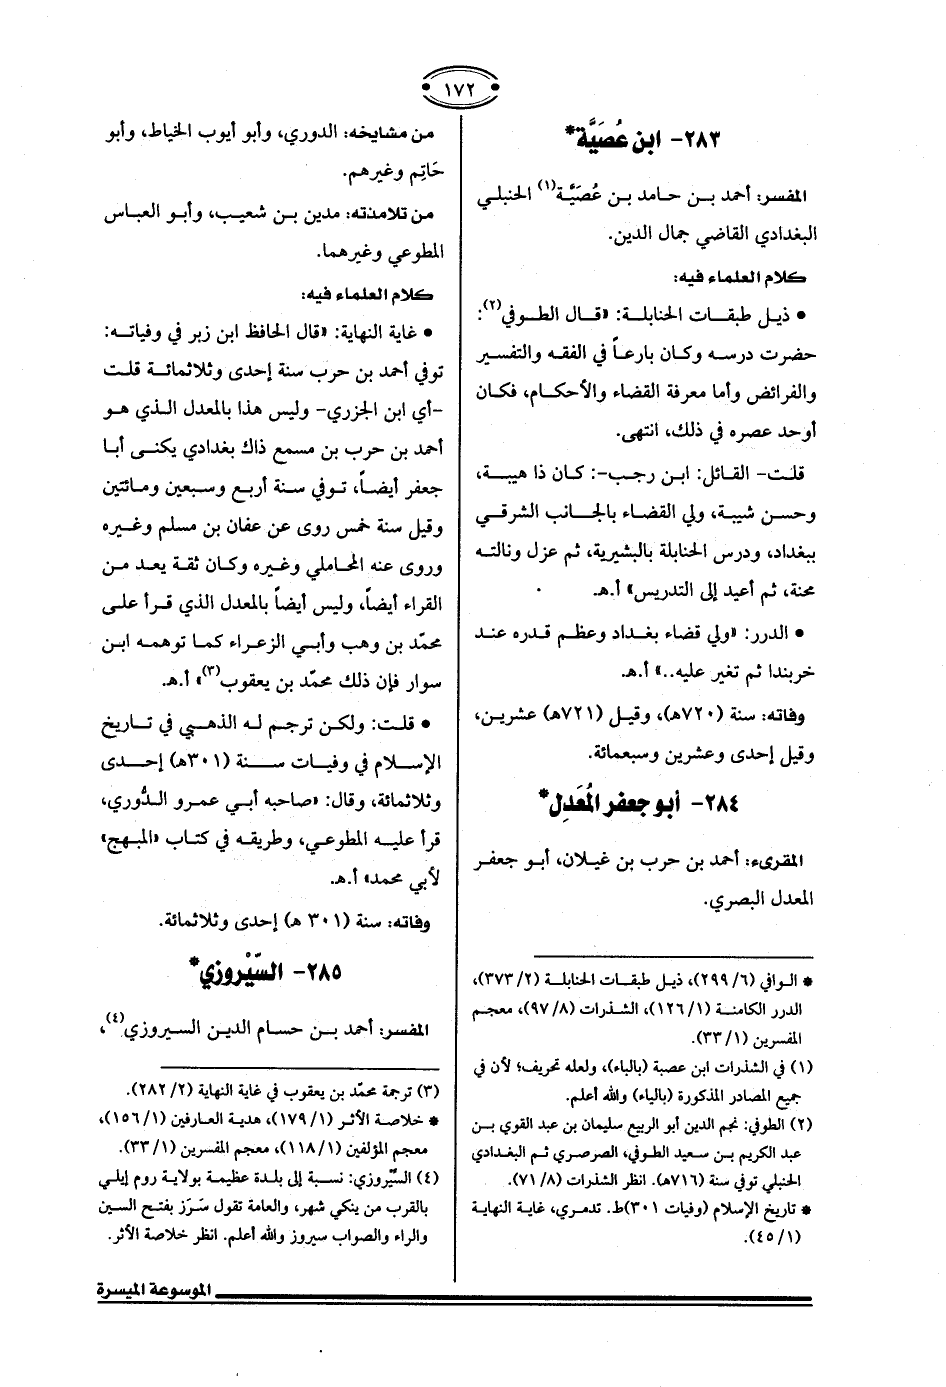 ١٧٢
٢٨٣- ابن عُصَيَّة*
المفسر: أحمد بن حامد بن عُصَيَّة(١) الحنبلي
البغدادي القاضي جمال الدين.
كلام العلماء فيه:
• ذيل طبقات الحنابلة: «قال الطوفي(٢):
حضرت درسه وكان بارعاً في الفقه والتفسير
والفرائض وأما معرفة القضاء والأحكام، فكان
أوحد عصره في ذلك، انتهى.
قلت- القائل: ابن رجب-: كان ذا هيبة،
وحسن شيبة، ولي القضاء بالجانب الشرقي
ببغداد، ودرس الحنابلة بالبشيرية، ثم عزل ونالته
محنة، ثم أعيد إلى التدريس» أ.هـ.
• الدرر: «ولي قضاء بغداد وعظم قدره عند
خربندا ثم تغير عليه..» أ.هـ.
وفاته: سنة (٧٢٠هـ)، وقيل (٧٢١هـ) عشرين،
وقيل إحدى وعشرين وسبعمائة.
٢٨٤- أبو جعفر المُعَدِل*
المقرىء: أحمد بن حرب بن غيلان، أبو جعفر
المعدل البصري.
* الوافي (٦/ ٢٩٩)، ذيل طبقات الحنابلة (٢/ ٣٧٣)،
الدرر الكامنة (١/ ١٢٦)، الشذرات (٨/ ٩٧)، معجم
المفسرين (١/ ٣٣).
(١) في الشذرات ابن عصبة (بالباء)، ولعله تحريف؛ لأن في
جميع المصادر المذكورة (بالياء) والله أعلم.
(٢) الطوفي: نجم الدين أبو الربيع سليمان بن عبد القوي بن
عبد الكريم بن سعيد الطوفي، الصرصري ثم البغدادي
الحنبلي توفي سنة (٧١٦هـ). انظر الشذرات (٨/ ٧١).
* تاريخ الإسلام (وفيات ٣٠١)ط. تدمري، غاية النهاية
(١/ ٤٥).
من مشايخه: الدوري، وأبو أيوب الخياط، وأبو
حَاتِم وغيرهم.
من تلامذته: مدين بن شعيب، وأبو العباس
المطوعي وغيرهما.
كلام العلماء فيه:
• غاية النهاية: «قال الحافظ ابن زبر في وفياته:
توفي أحمد بن حرب سنة إحدى وثلاثمائة قلت
-أي ابن الجزري- وليس هذا بالمعدل الذي هو
أحمد بن حرب بن مسمع ذاك بغدادي يكنى أبا
جعفر أيضاً، توفي سنة أربع وسبعين ومائتين
وقيل سنة خمس روى عن عفان بن مسلم وغيره
وروى عنه المحاملي وغيره وكان ثقة يعد من
القراء أيضاً، وليس أيضاً بالمعدل الذي قرأ على
محمّد بن وهب وأبي الزعراء كما توهمه ابن
سوار فإن ذلك محمّد بن يعقوب(٣)» أ.هـ.
• قلت: ولكن ترجم له الذهبي في تاريخ
الإسلام في وفيات سنة (٣٠١هـ) إحدى
وثلاثمائة، وقال: «صاحبه أبي عمرو الدُّوري،
قرأ عليه المطوعي، وطريقه في كتاب «المبهج»
لأبي محمد» أ.هـ.
وفاته: سنة (٣٠١ هـ) إحدى وثلاثمائة.
٢٨٥- السّيْروزي*
المفسر: أحمد بن حسام الدين السيروزي(٤)،
(٣) ترجمة محمّد بن يعقوب في غاية النهاية (٢/ ٢٨٢).
* خلاصة الأثر (١/ ١٧٩)، هدية العارفين (١/ ١٥٦)،
معجم المؤلفين (١/ ١١٨)، معجم المفسرين (١/ ٣٣).
(٤) السيّروزي: نسبة إلى بلدة عظيمة بولاية روم إيلي
بالقرب من ينكي شهر، والعامة تقول سَرَز بفتح السين
والراء والصواب سيروز والله أعلم. انظر خلاصة الأثر.
الموسوعة الميسرة